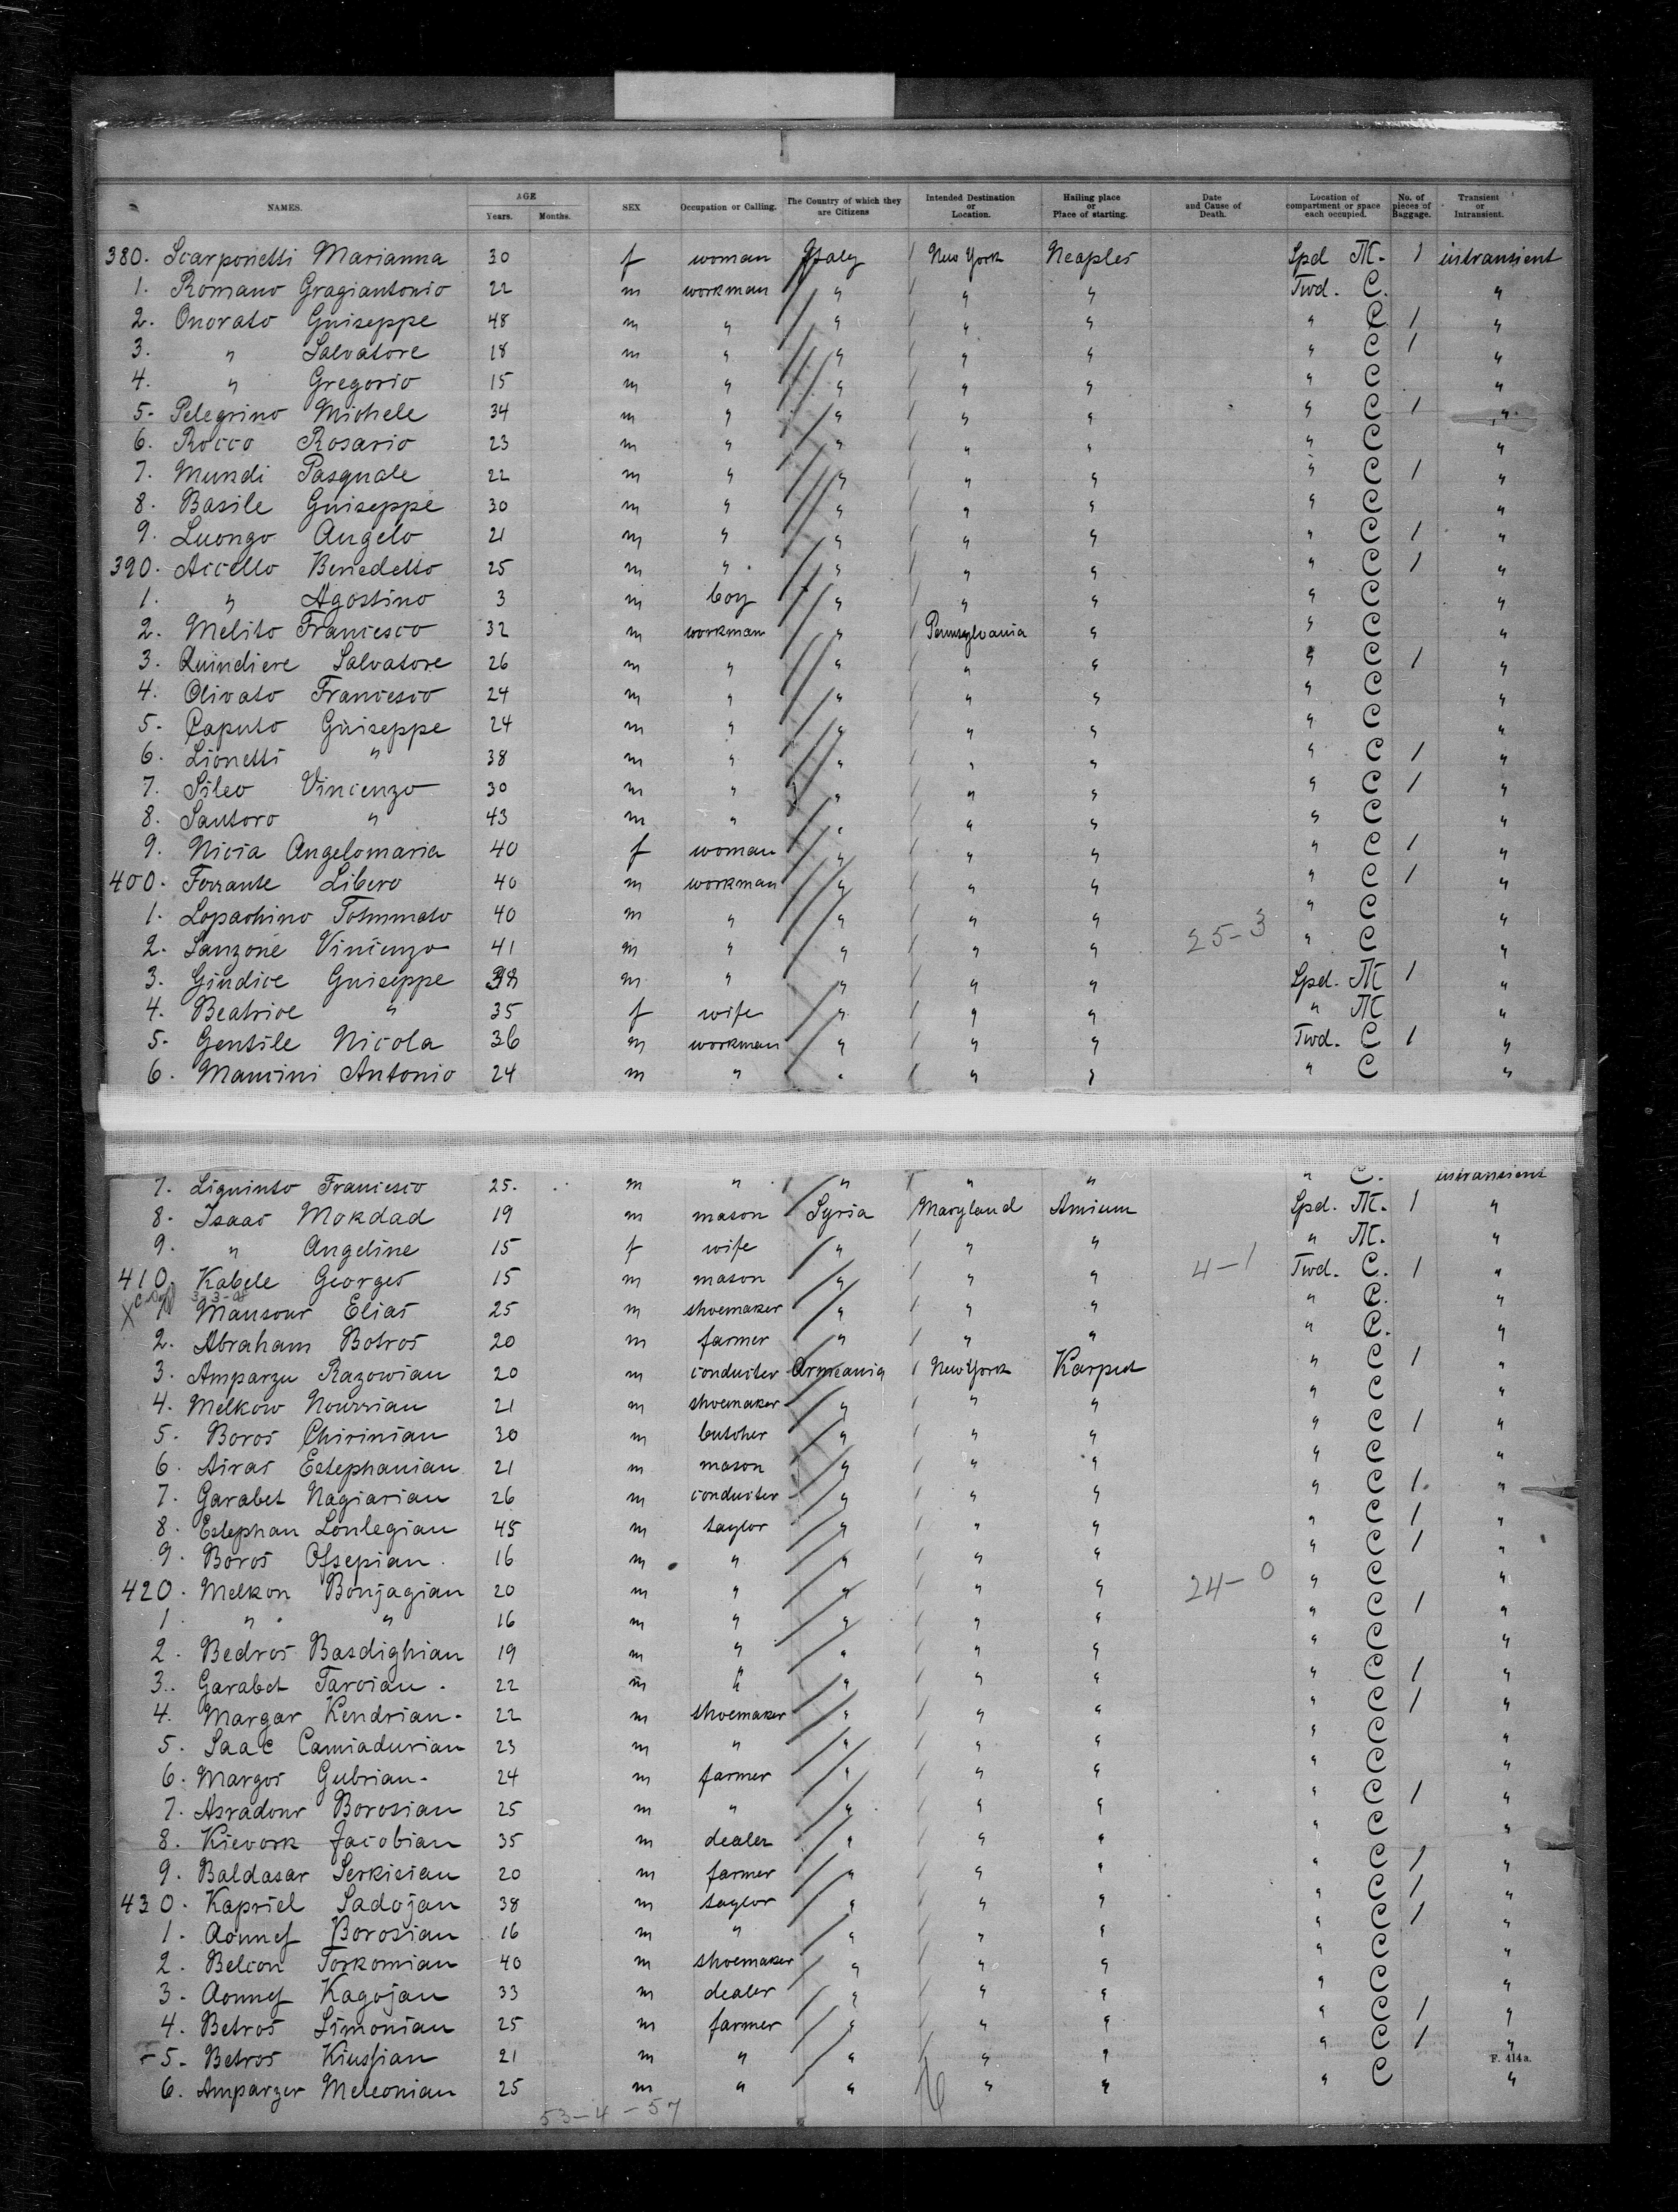 NAMES. AGE Years. Months. SEX Occupation or Calling. The Country of which they are Citizens Intended Destination or Location. Hailing place or Place of starting. Date and Cause of Death. Location of compartment or space each occupied. No. of pieces of Baggage. Transient or Intransient.
380. Scarponetti Marianna 30 f woman Italy / New York Neaples Spd M. 1 intransient
1. Romano Gragiantonio 22 m workman " / " " Twd. C. "
2. Onorato Guiseppe 48 m " " / " " " C 1 "
3. " Salvatore 18 m " " / " " " C 1 "
4. " Gregorio 15 m " " / " " " C "
5. Pelegrino Michele 34 m " " / " " " C 1 "
6. Rocco Rosario 23 m " " / " " " C "
7. Mundi Pasquale 22 m " " / " " " C 1 "
8. Basile Guiseppe 30 m " " / " " " C "
9. Luongo Angelo 21 m " " / " " " C 1 "
390. Accello Benedetto 25 m " " / " " " C 1 "
1. " Agostino 3 m boy " / " " " C "
2. Melito Francesco 32 m workman " / Pennsylvania " " C "
3. Quindiere Salvatore 26 m " " / " " " C 1 "
4. Olivato Francesco 24 m " " / " " " C "
5. Caputo Guiseppe 24 m " " / " " " C "
6. Lionetti " 38 m " " / " " " C 1 "
7. Sileo Vincenzo 30 m " " / " " " C 1 "
8. Santoro " 43 m " " / " " " C "
9. Nicia Angelomaria 40 f woman " / " " " C 1 "
400. Forrante Libero 40 m workman " / " " " C 1 "
1. Lopachino Tommato 40 m " " / " " " C "
2. Sanzone Vincenzo 41 m " " / " " 25-3 " C "
3. Giudice Guiseppe 38 m " " / " " Spd. M 1 "
4. Beatrice " 35 f wife " / " " " M "
5. Gentile Nicola 36 m workman " / " " Twd. C 1 "
6. Mancini Antonio 24 m " " / " " " C "
7. Liquinto Francesco 25. m " " / " " " C. intransient
8. Isaac Mokdad 19 m mason Syria Maryland Amium Spd. M. 1 "
9. " Angeline 15 f wife " / " " " M. "
410. Kabele Georges 15 m mason " / " " 4-1 Twd. C. 1 "
X 1 Mansour Elias 25 m shoemaker " / " " " C. "
2. Abraham Botros 20 m farmer " / " " " C. "
3. Amparzu Razowian 20 m conduiter Armeania / New York Karput " C 1 "
4. Melkow Nourrian 21 m shoemaker " / " " " C "
5. Boros Chirinian 30 m butcher " / " " " C 1 "
6. Airas Estephanian 21 m mason " / " " " C "
7. Garabet Nagiarian 26 m conduiter " / " " " C 1. "
8. Estephan Lonlegian 45 m taylor " / " " " C 1 "
9. Boros Ofsepian. 16 m " " / " " " C 1 "
420. Melkon Bonjagian 20 m " " / " " 24-0 " C "
1 " " 16 m " " / " " " C 1 "
2. Bedros Basdighian 19 m " " / " " " C "
3. Garabet Taroian. 22 m " " / " " " C 1 "
4. Margar Kendrian. 22 m shoemaker " / " " " C 1 "
5. Saac Camiadurian 23 m " " / " " " C "
6. Margos Gubrian. 24 m farmer " / " " " C "
7. Asradour Borosian 25 m " " / " " " C 1 "
8. Kievork Jacobian 35 m dealer " / " " " C "
9. Baldasar Serkisian 20 m farmer " / " " " C 1 "
430. Kapriel Sadojan 38 m taylor " / " " " C 1 "
1. Aounef Borosian 16 m " " / " " " C 1 "
2. Belcon Torkomian 40 m shoemaker " / " " " C "
3. Aounef Kagojan 33 m dealer " / " " " C "
4. Betros Simonian 25 m farmer " / " " " C 1 "
5. Betros Kiusfian 21 m " " / " " " C 1 "
F. 414a.
6. Amparzer Meleonian 25 m " " " " " C "
53-4-57